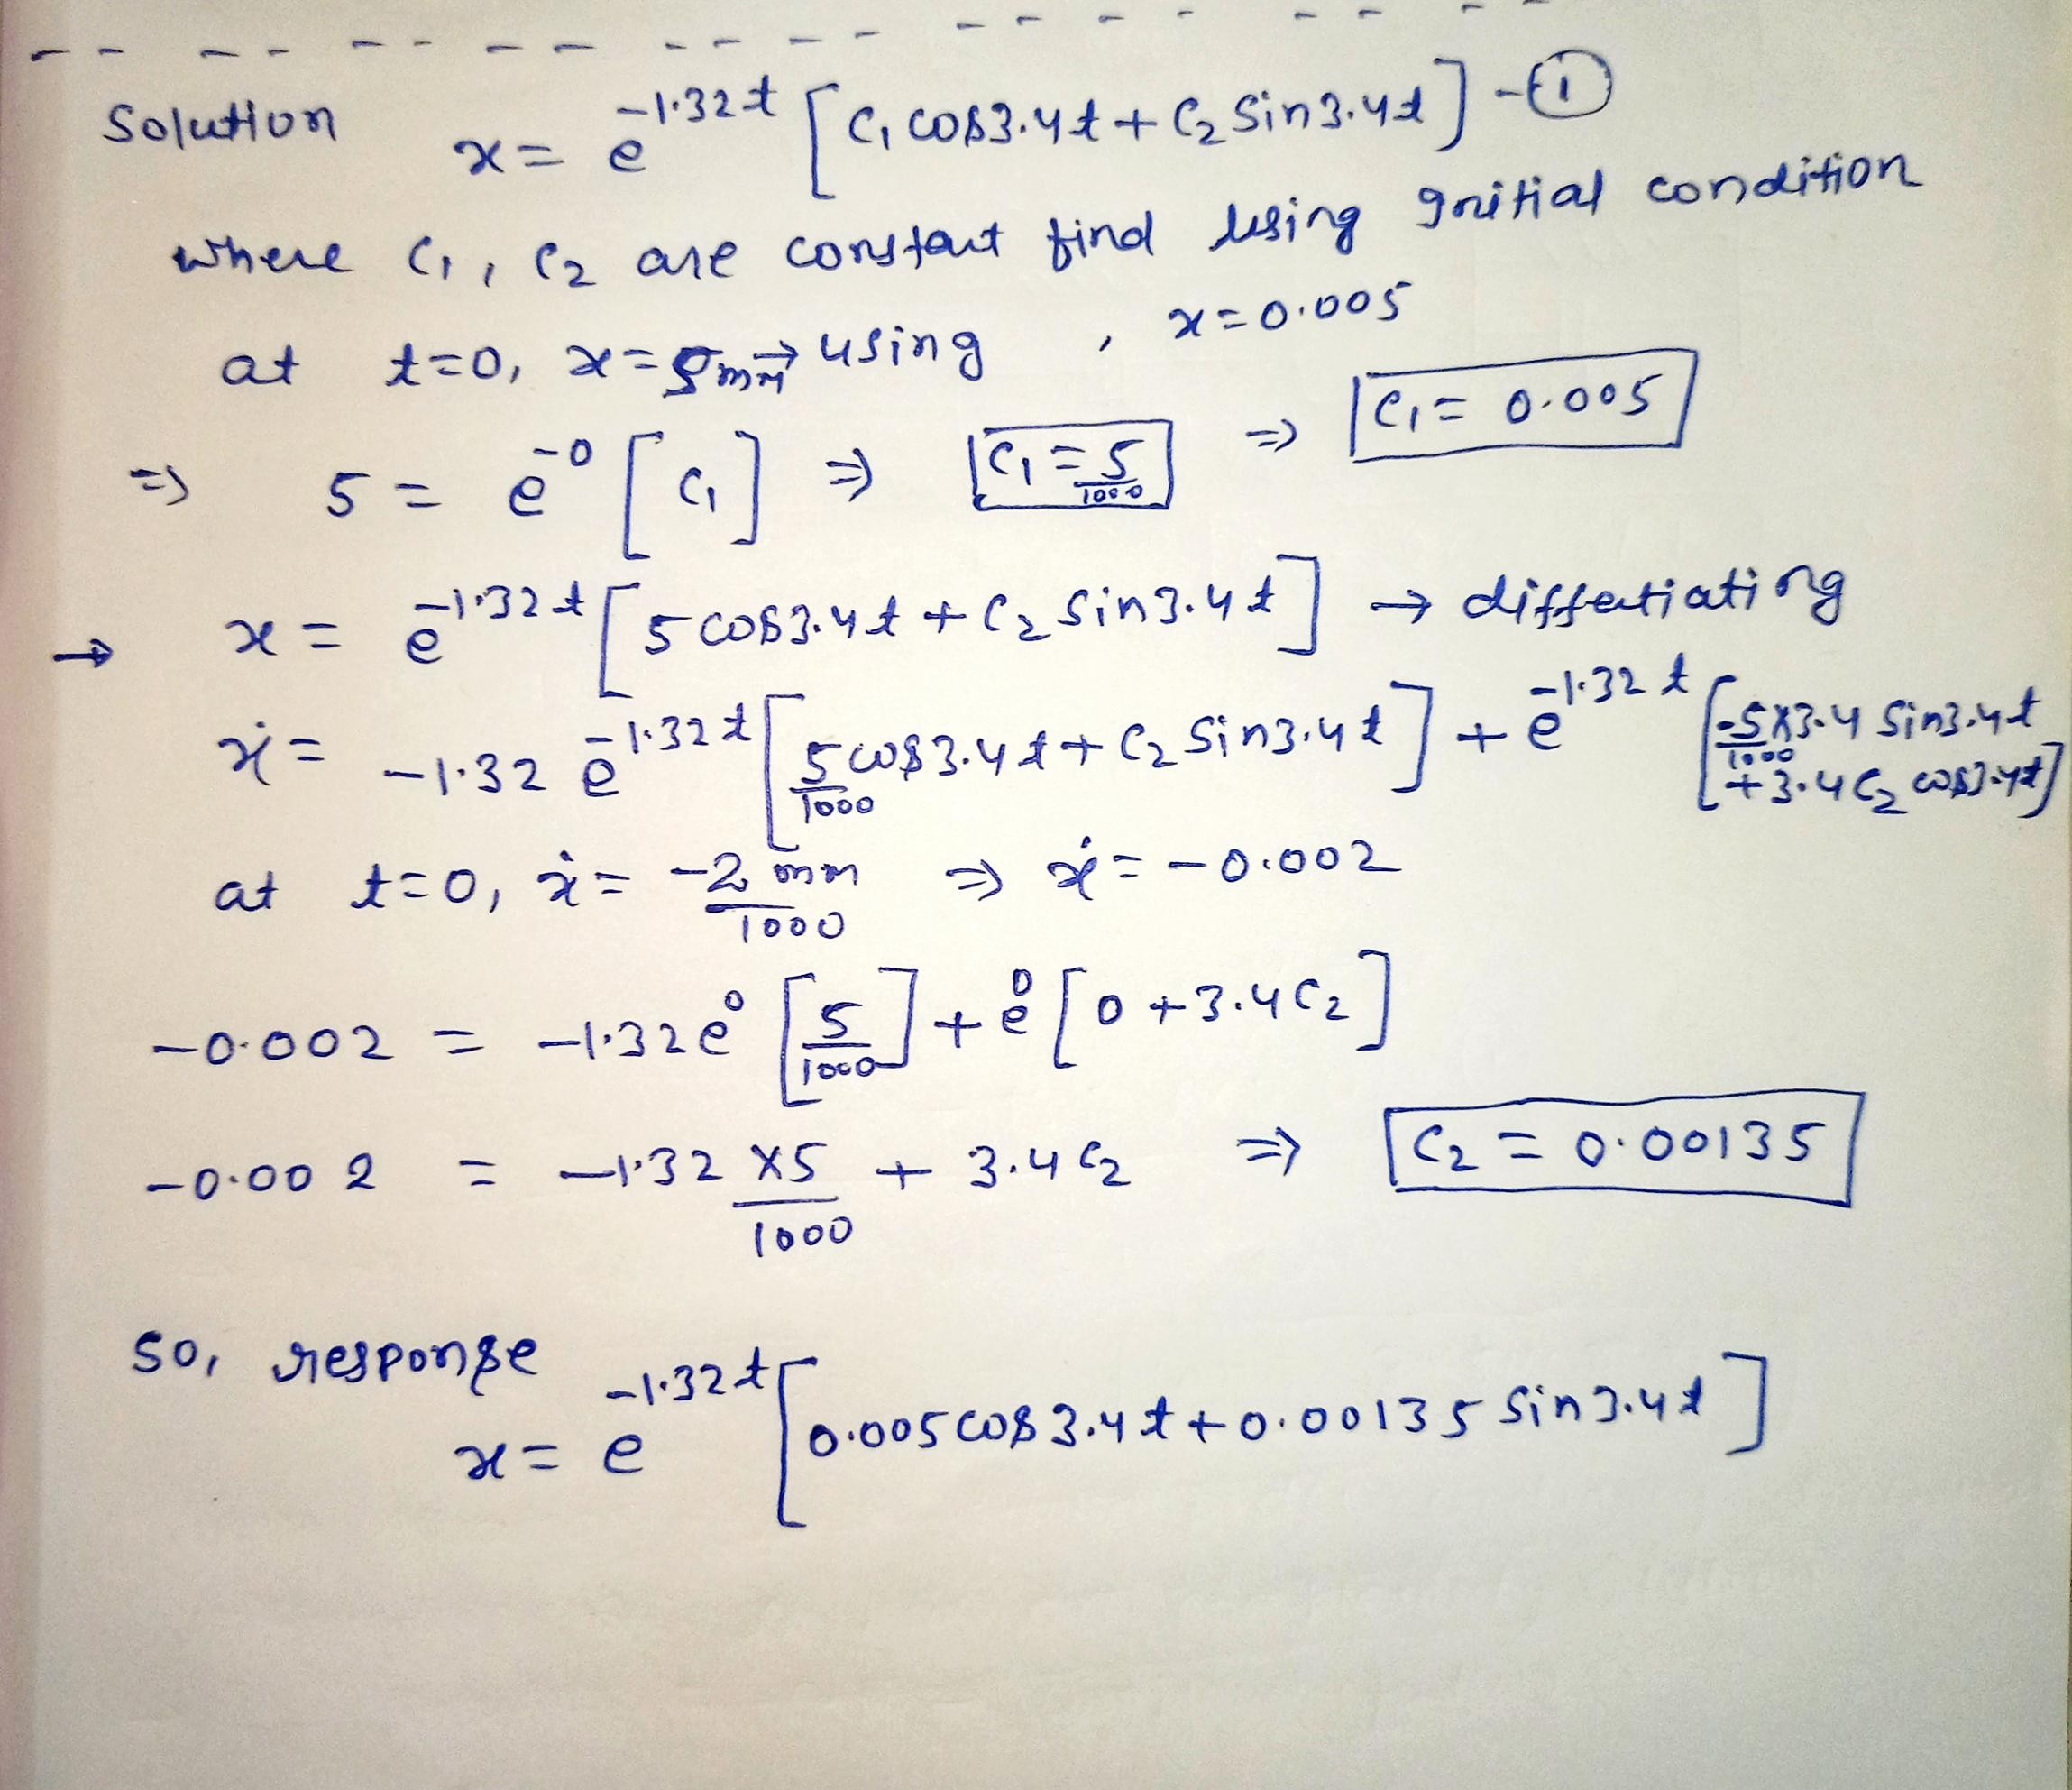 Solution x = e^-1.32t [C₁ cos3.4t + C₂ sin3.4t] -①
where C₁, C₂ are constant find using initial condition
at t=0, x=5mm → using , x=0.005
=> 5 = e^-0 [C₁] => C₁ = 5/1000 => C₁ = 0.005
→ x = e^-1.32t [5 cos3.4t + C₂ sin3.4t] → diffetiating
ẋ = -1.32 e^-1.32t [5/1000 cos3.4t + C₂ sin3.4t] + e^-1.32t [-5/1000 x3.4 sin3.4t + 3.4C₂ cos3.4t]
at t=0, ẋ = -2 mm/1000 => ẋ = -0.002
-0.002 = -1.32e^0 [5/1000] + e^0 [0 + 3.4C₂]
-0.002 = -1.32 x5/1000 + 3.4C₂ => C₂ = 0.00135
so, response
x = e^-1.32t [0.005 cos3.4t + 0.00135 sin3.4t]